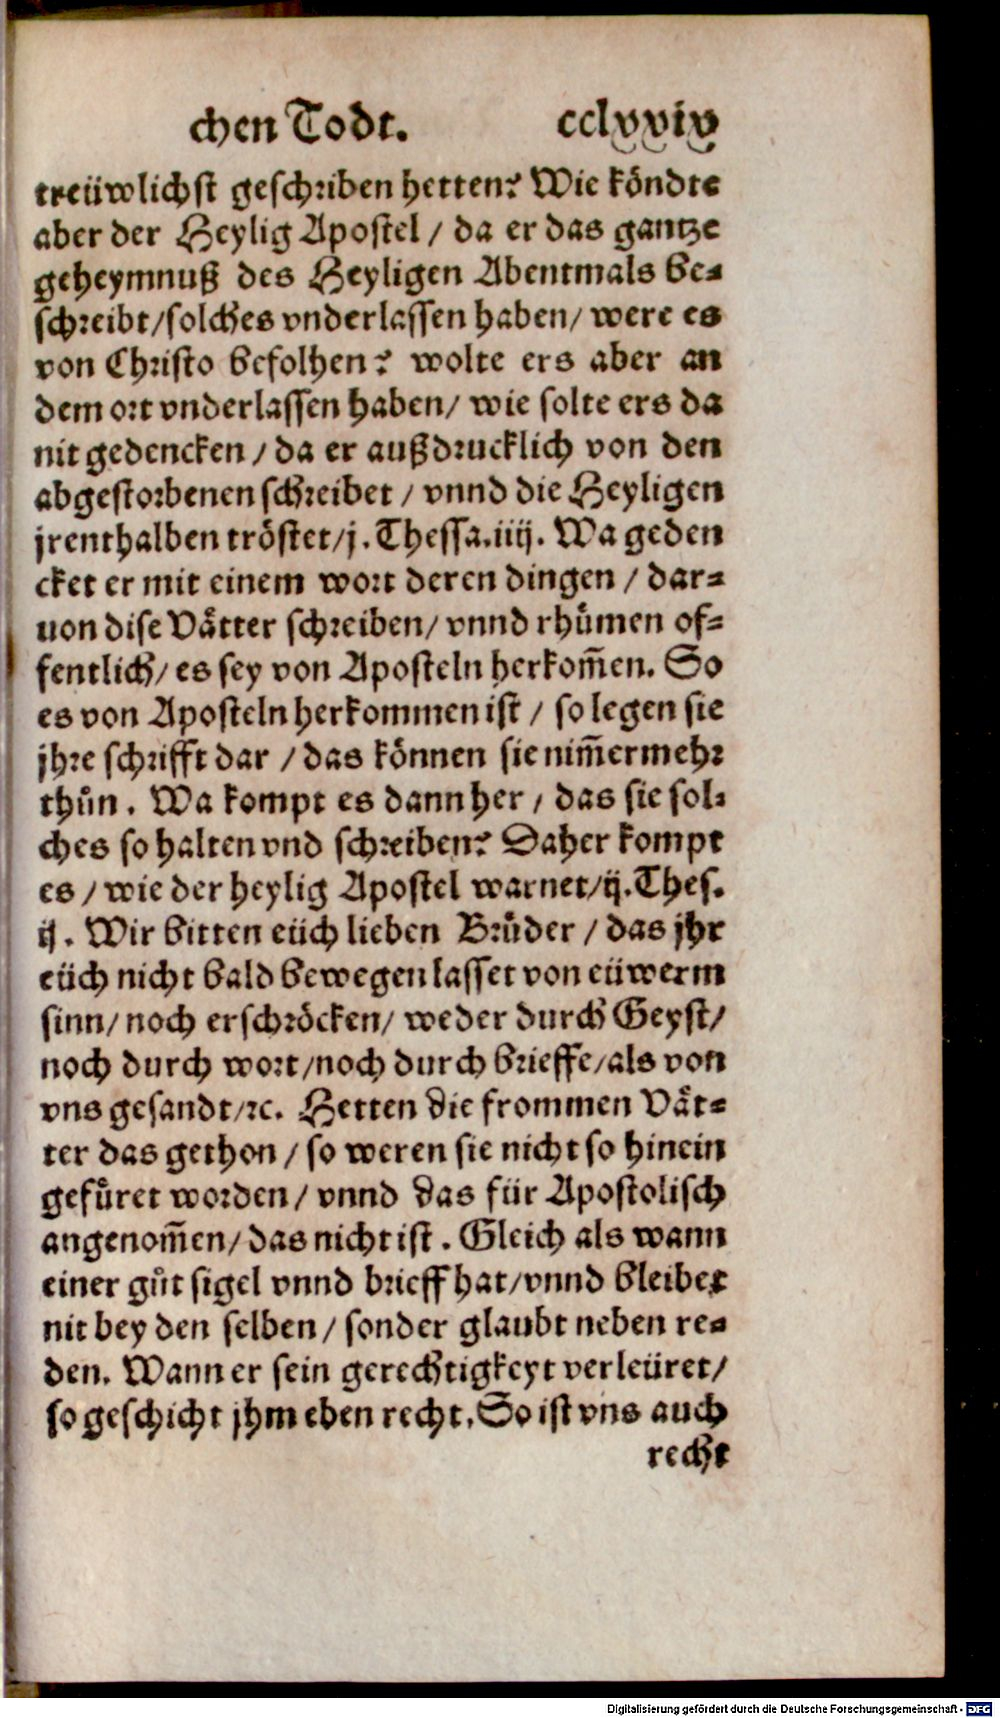 chen Todt. cclxxix
treüwlichst geschriben hetten? Wie köndte
aber der Heylig Apostel / da er das gantze
geheymnuß des Heyligen Abentmals be-
schreibt/solches vnderlassen haben/ were es
von Christo befolhen? wolte ers aber an
dem ort vnderlassen haben/ wie solte ers da
nit gedencken / da er außdrucklich von den
abgestorbenen schreibet / vnnd die Heyligen
jrenthalben tröstet/j. Thessa.iiij. Wa geden
cket er mit einem wort deren dingen / dar-
uon dise Vätter schreiben/ vnnd rhuͤmen of-
fentlich/ es sey von Aposteln herkom̃en. So
es von Aposteln herkommen ist / so legen sie
jhre schrifft dar / das können sie nim̃ermehr
thuͦn. Wa kompt es dann her / das sie sol-
ches so halten vnd schreiben? Daher kompt
es / wie der heylig Apostel warnet/ij.Thes.
ij. Wir bitten eüch lieben Bruͤder / das jhr
eüch nicht bald bewegen lasset von eüwerm
sinn/ noch erschröcken/ weder durch Geyst/
noch durch wort/noch durch brieffe/als von
vns gesandt/ꝛc. Hetten die frommen Vät-
ter das gethon / so weren sie nicht so hinein
gefuͤret worden/ vnnd das für Apostolisch
angenom̃en/das nicht ist. Gleich als wann
einer guͦt sigel vnnd brieff hat/vnnd bleibet
nit bey den selben / sonder glaubt neben re-
den. Wann er sein gerechtigkeyt verleüret/
so geschicht jhm eben recht. So ist vns auch
recht
Digitalisierung gefördert durch die Deutsche Forschungsgemeinschaft - DFG